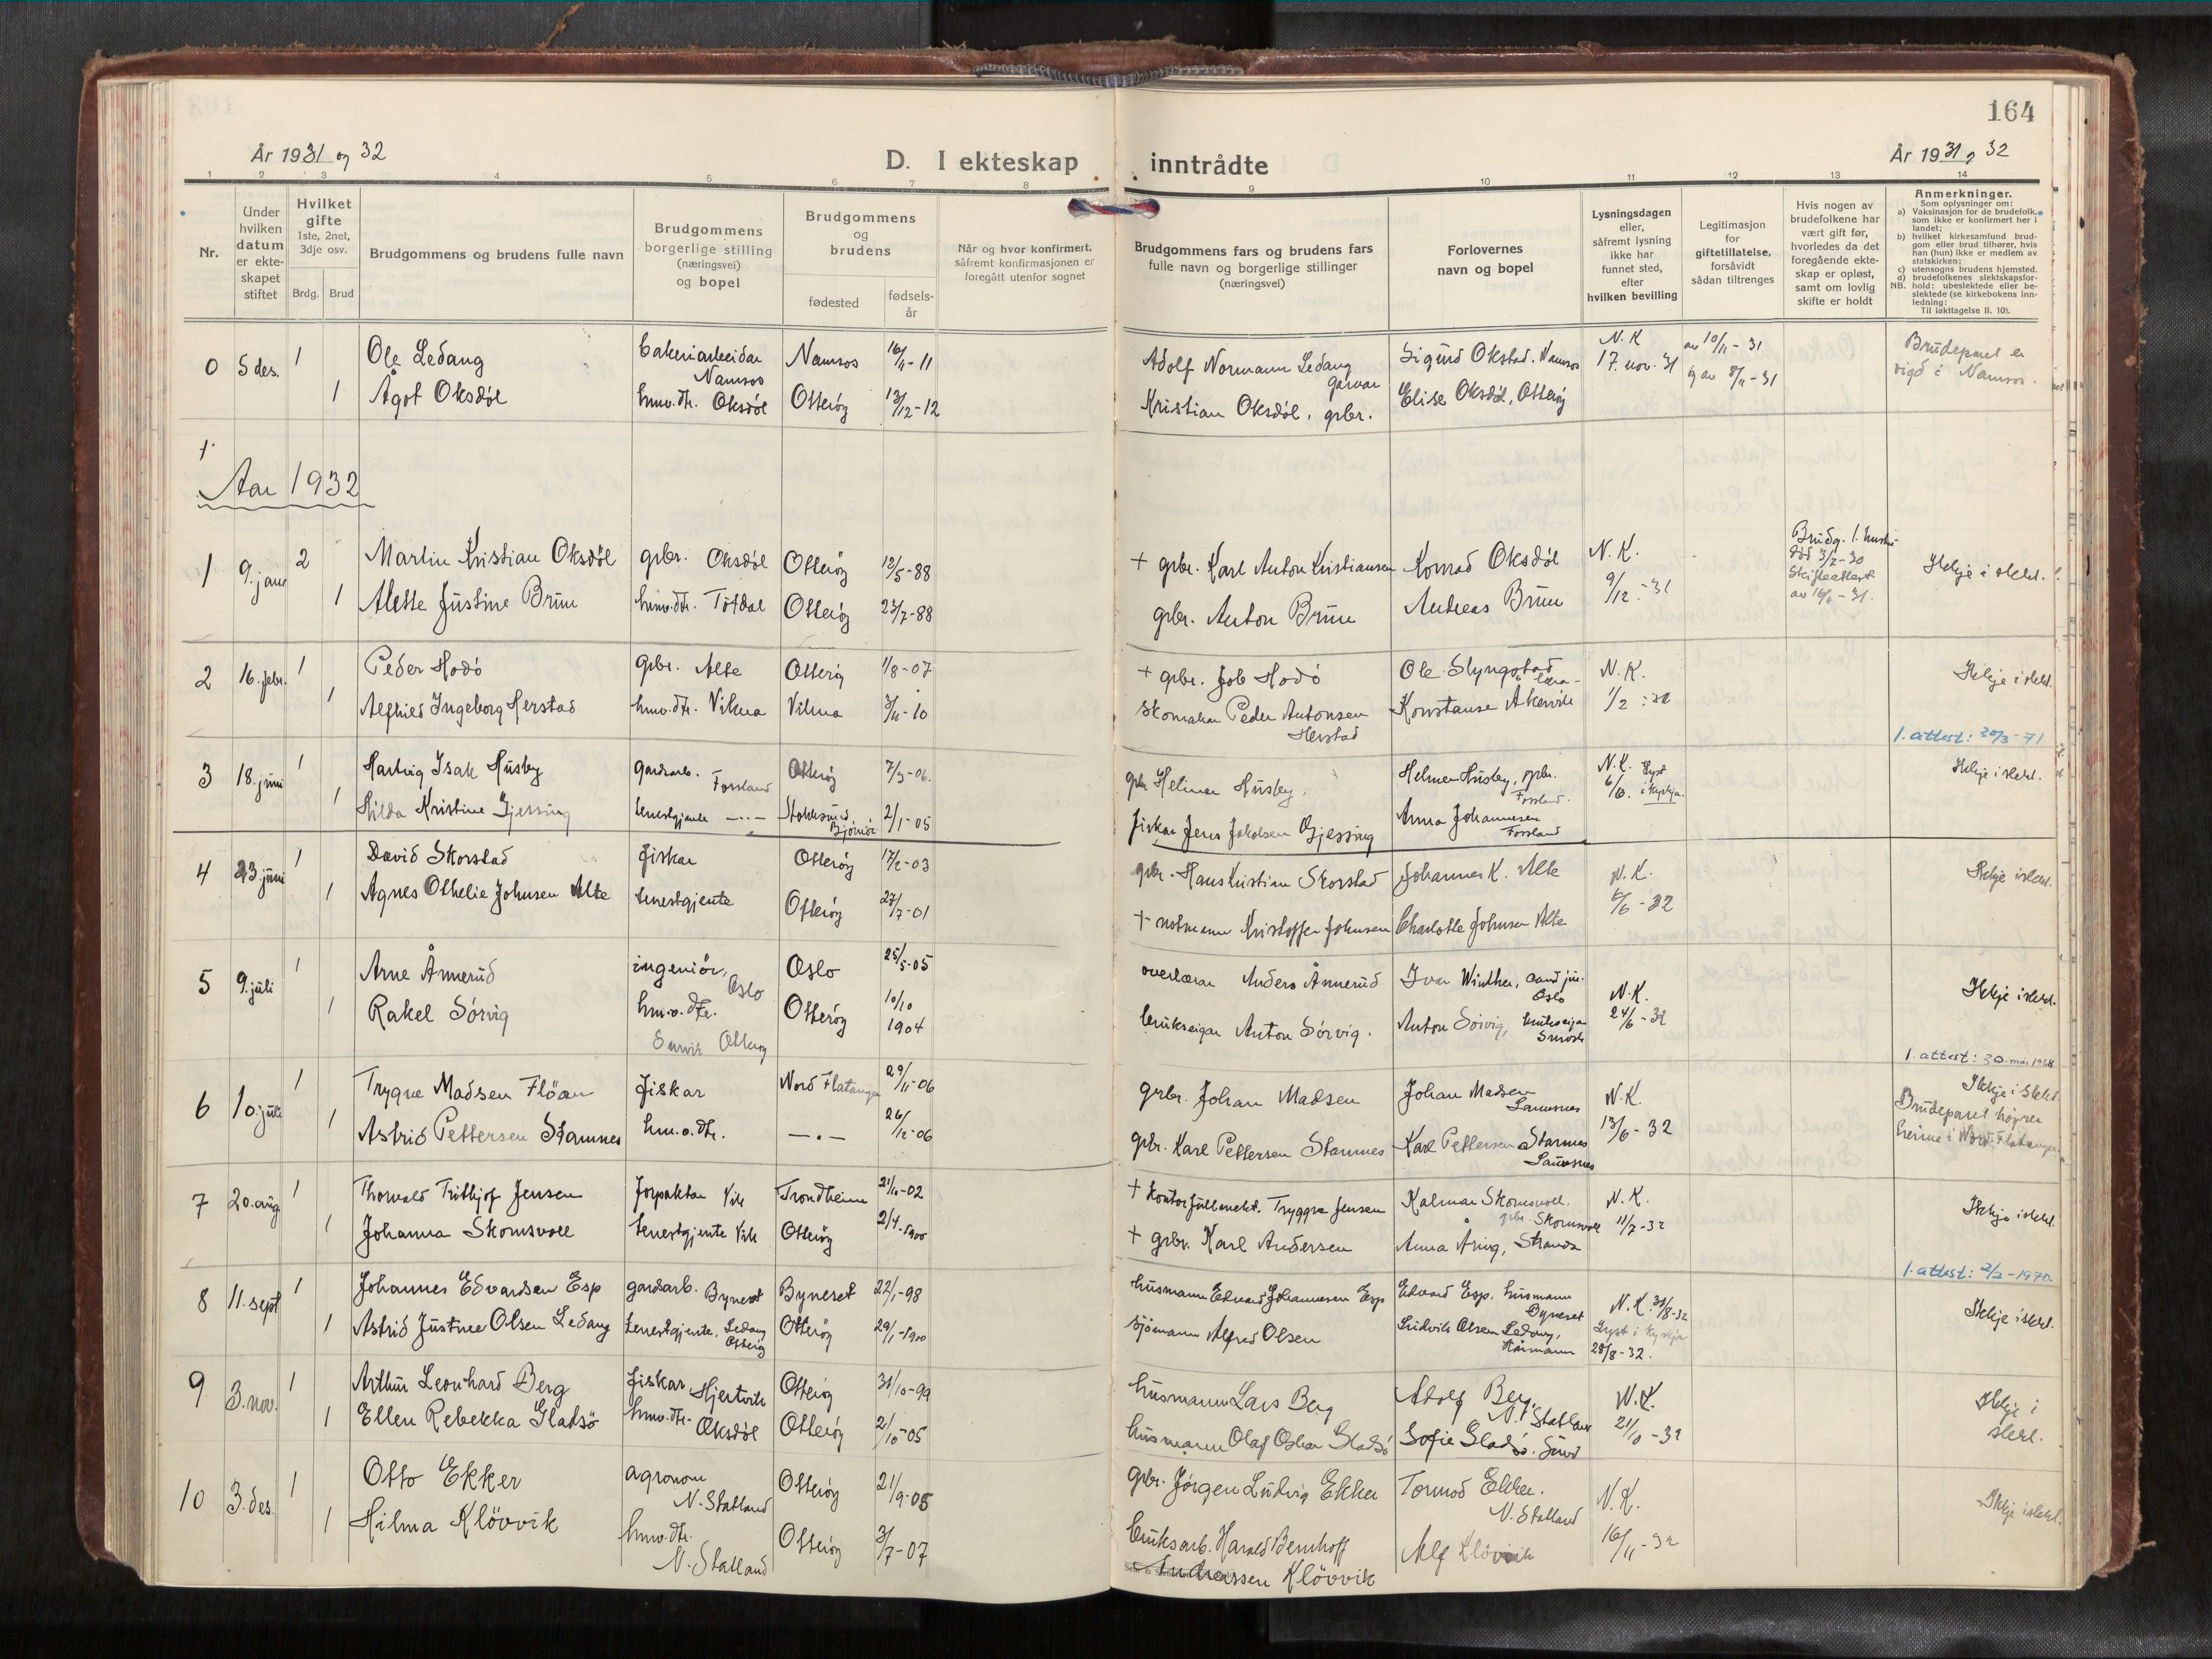 164
År 1931 og 32
D. I ekteskap inntrådte
År 1931 og 32
1 2 3 4 5 6 7 8 9 10 11 12 13 14
Nr.
Under hvilken datum er ekteskapet stiftet
Hvilket gifte
1ste, 2net, 3dje osv.
Brdg. Brud
Brudgommens og brudens fulle navn
Brudgommens borgerlige stilling (næringsvei) og bopel
Brudgommens og brudens
fødested
fødselsår
Når og hvor konfirmert, såfremt konfirmasjonen er foregått utenfor sognet
Brudgommens fars og brudens fars fulle navn og borgerlige stillinger (næringsvei)
Forlovernes navn og bopel
Lysningsdagen eller, såfremt lysning ikke har funnet sted, efter hvilken bevilling
Legitimasjon for giftetillatelse, forsåvidt sådan tiltrenges
Hvis nogen av brudefolkene har vært gift før, hvorledes da det foregående ekteskap er opløst, samt om lovlig skifte er holdt
Anmerkninger.
Som oplysninger om:
a) Vaksinasjon for de brudefolk, som ikke er konfirmert her i landet;
b) hvilket kirkesamfund brudgom eller brud tilhører, hvis han (hun) ikke er medlem av statskirken;
c) utensogns brudens hjemsted.
d) brudefolkenes slektskapsforhold: ubeslektede eller beslektede (se kirkebokens innledning:
NB.
Til iakttagelse II. 10).
0 5 des. 1 Ole Ledang bakeriarbeidar Namsos Namsos 16/11-11 Adolf Normann Ledang garvar Sigurd Okstad. Namsos N.K. 17. nov. 31 av 10/11-31 Brudeparet er vigd i Namsos.
1 Ågot Oksdøl huw.dtr. Oksdøl Otterøy 13/12-12 Kristian Oksdøl, grbr. Elise Oksdøl, Otterøy og av 8/11-31
Aar 1932
1 9. jan 2 Martin Kristian Oksdøl grbr. Oksdøl Otterøy 12/5-88 + grbr. Karl Anton Kristiansen Konrad Oksdøl N.K. Brudg. 1. hustru død 3/2-30 Skifteattest Ikkje i slekt.
1 Alette Justine Brun huw.dtr. Tøtdal Otterøy 23/7-88 grbr. Anton Brun Andreas Brun 9/12-31
2 16. febr. 1 Peder Hodø grbr. Alte Otterøy 1/8-07 + grbr. Job Hodø Ole Slyngstad N.K. Ikkje i slekt.
1 Alfhild Ingeborg Herstad huw.dtr. Vikna Vikna 3/11-10 skomakar Peder Antonsen Herstad Konstanse Akervik 1/2-32
1. attest: 20/3-71
3 18. juni 1 Hartvig Isak Husby Gardsarb. Forsland Otterøy 7/3-06. grbr Helmer Husby. Helmer Husby, grbr. Forsland. N.K. 6/6. Lyst i kyrkja. Ikkje i slekt.
1 Hilda Kristine Gjessing tenestgjente -"- Stokksund Bjørnør 2/1-05 fiskar Jens Jakobsen Gjessing Anna Johannesen Forsland
4 23. juni 1 David Skorstad fiskar Otterøy 17/2-03 grbr. Hans Kristian Skorstad Johannes K. Alte N.K. Ikkje i slekt.
1 Agnes Othelie Johnsen Alte tenestgjente Otterøy 27/7-01 + notmann Kristoffer Johnsen Charlotte Johnsen Alte 6/6-32
5 9. juli 1 Arne Ånnerud ingeniør, Oslo Oslo 25/5-05 overlærar Anders Ånnerud Ivar Winther, cand jur. Oslo N.K. Ikkje i slekt.
1 Rakel Sørvig huw.dtr. Otterøy Otterøy 10/10 1904 brukseigar Anton Sørvig. Anton Sørvig, brukseigar 24/6-32
1. attest: 30. mai 1968
6 10. juli 1 Trygve Madsen Fløan fiskar Nord Flatanger 29/11-06 grbr. Johan Madsen Johan Madsen Lauvsnes N.K. Ikkje i slekt. Brudeparet høyrer heime i Nord. Flatanger
1 Astrid Pettersen Stamnes huw.dtr. -"- 26/12-06 grbr. Karl Pettersen Stamnes Karl Pettersen Stamnes Lauvsnes 13/6-32
7 20. aug 1 Thorvald Frithjof Jensen forpaktar Vik Trondheim 21/10-02 + kontorfullmekt. Tryggve Jensen Kalmar Skomsvoll. grbr. Skomsvoll N.K. 11/7-32 Ikkje i slekt.
1 Johanna Skomsvoll tenestgjente Vik Otterøy 2/4-1900 + grbr. Karl Andersen Anna Aring, Strand
1. attest: 2/2-1970.
8 11. sept 1 Johannes Edvardsen Esp gardsarb. Byneset Byneset 22/1-98 husmann Edvard Johannesen Esp Edvard Esp. husmann Byneset N.K. 31/8-32 Ikkje i slekt.
1 Astrid Justnee Olsen Ledang tenestgjente, Ledang Otterøy Otterøy 29/1-1900 sjømann Alfred Olsen Ludvik Olsen Ledang, Lyst i kyrkja 28/8-32.
9 3. nov. 1 Arthur Leonhard Berg fiskar Hjertvik Otterøy 31/10-99 husmann Lars Berg Adolf Berg. N. Statland N.K. Ikkje i slekt.
1 Ellen Rebekka Gladsø huw.dtr. Oksdøl Otterøy 2/10-05 husmann Olaf Oskar Gladsø Sofie Gladsø. Sund 21/10-32
10 3. des. 1 Otto Ekker agronom N. Statland Otterøy 21/9-05 grbr. Jørgen Ludvig Ekker Tormod Ekker. N. Statland N.K. Ikkje i slekt.
1 Hilma Kløvvik huw.dtr. N. Statland Otterøy 3/7-07 bruksarb. Harald Bernhoff Andreassen Kløvvik Alf Kløvvik 16/11-32